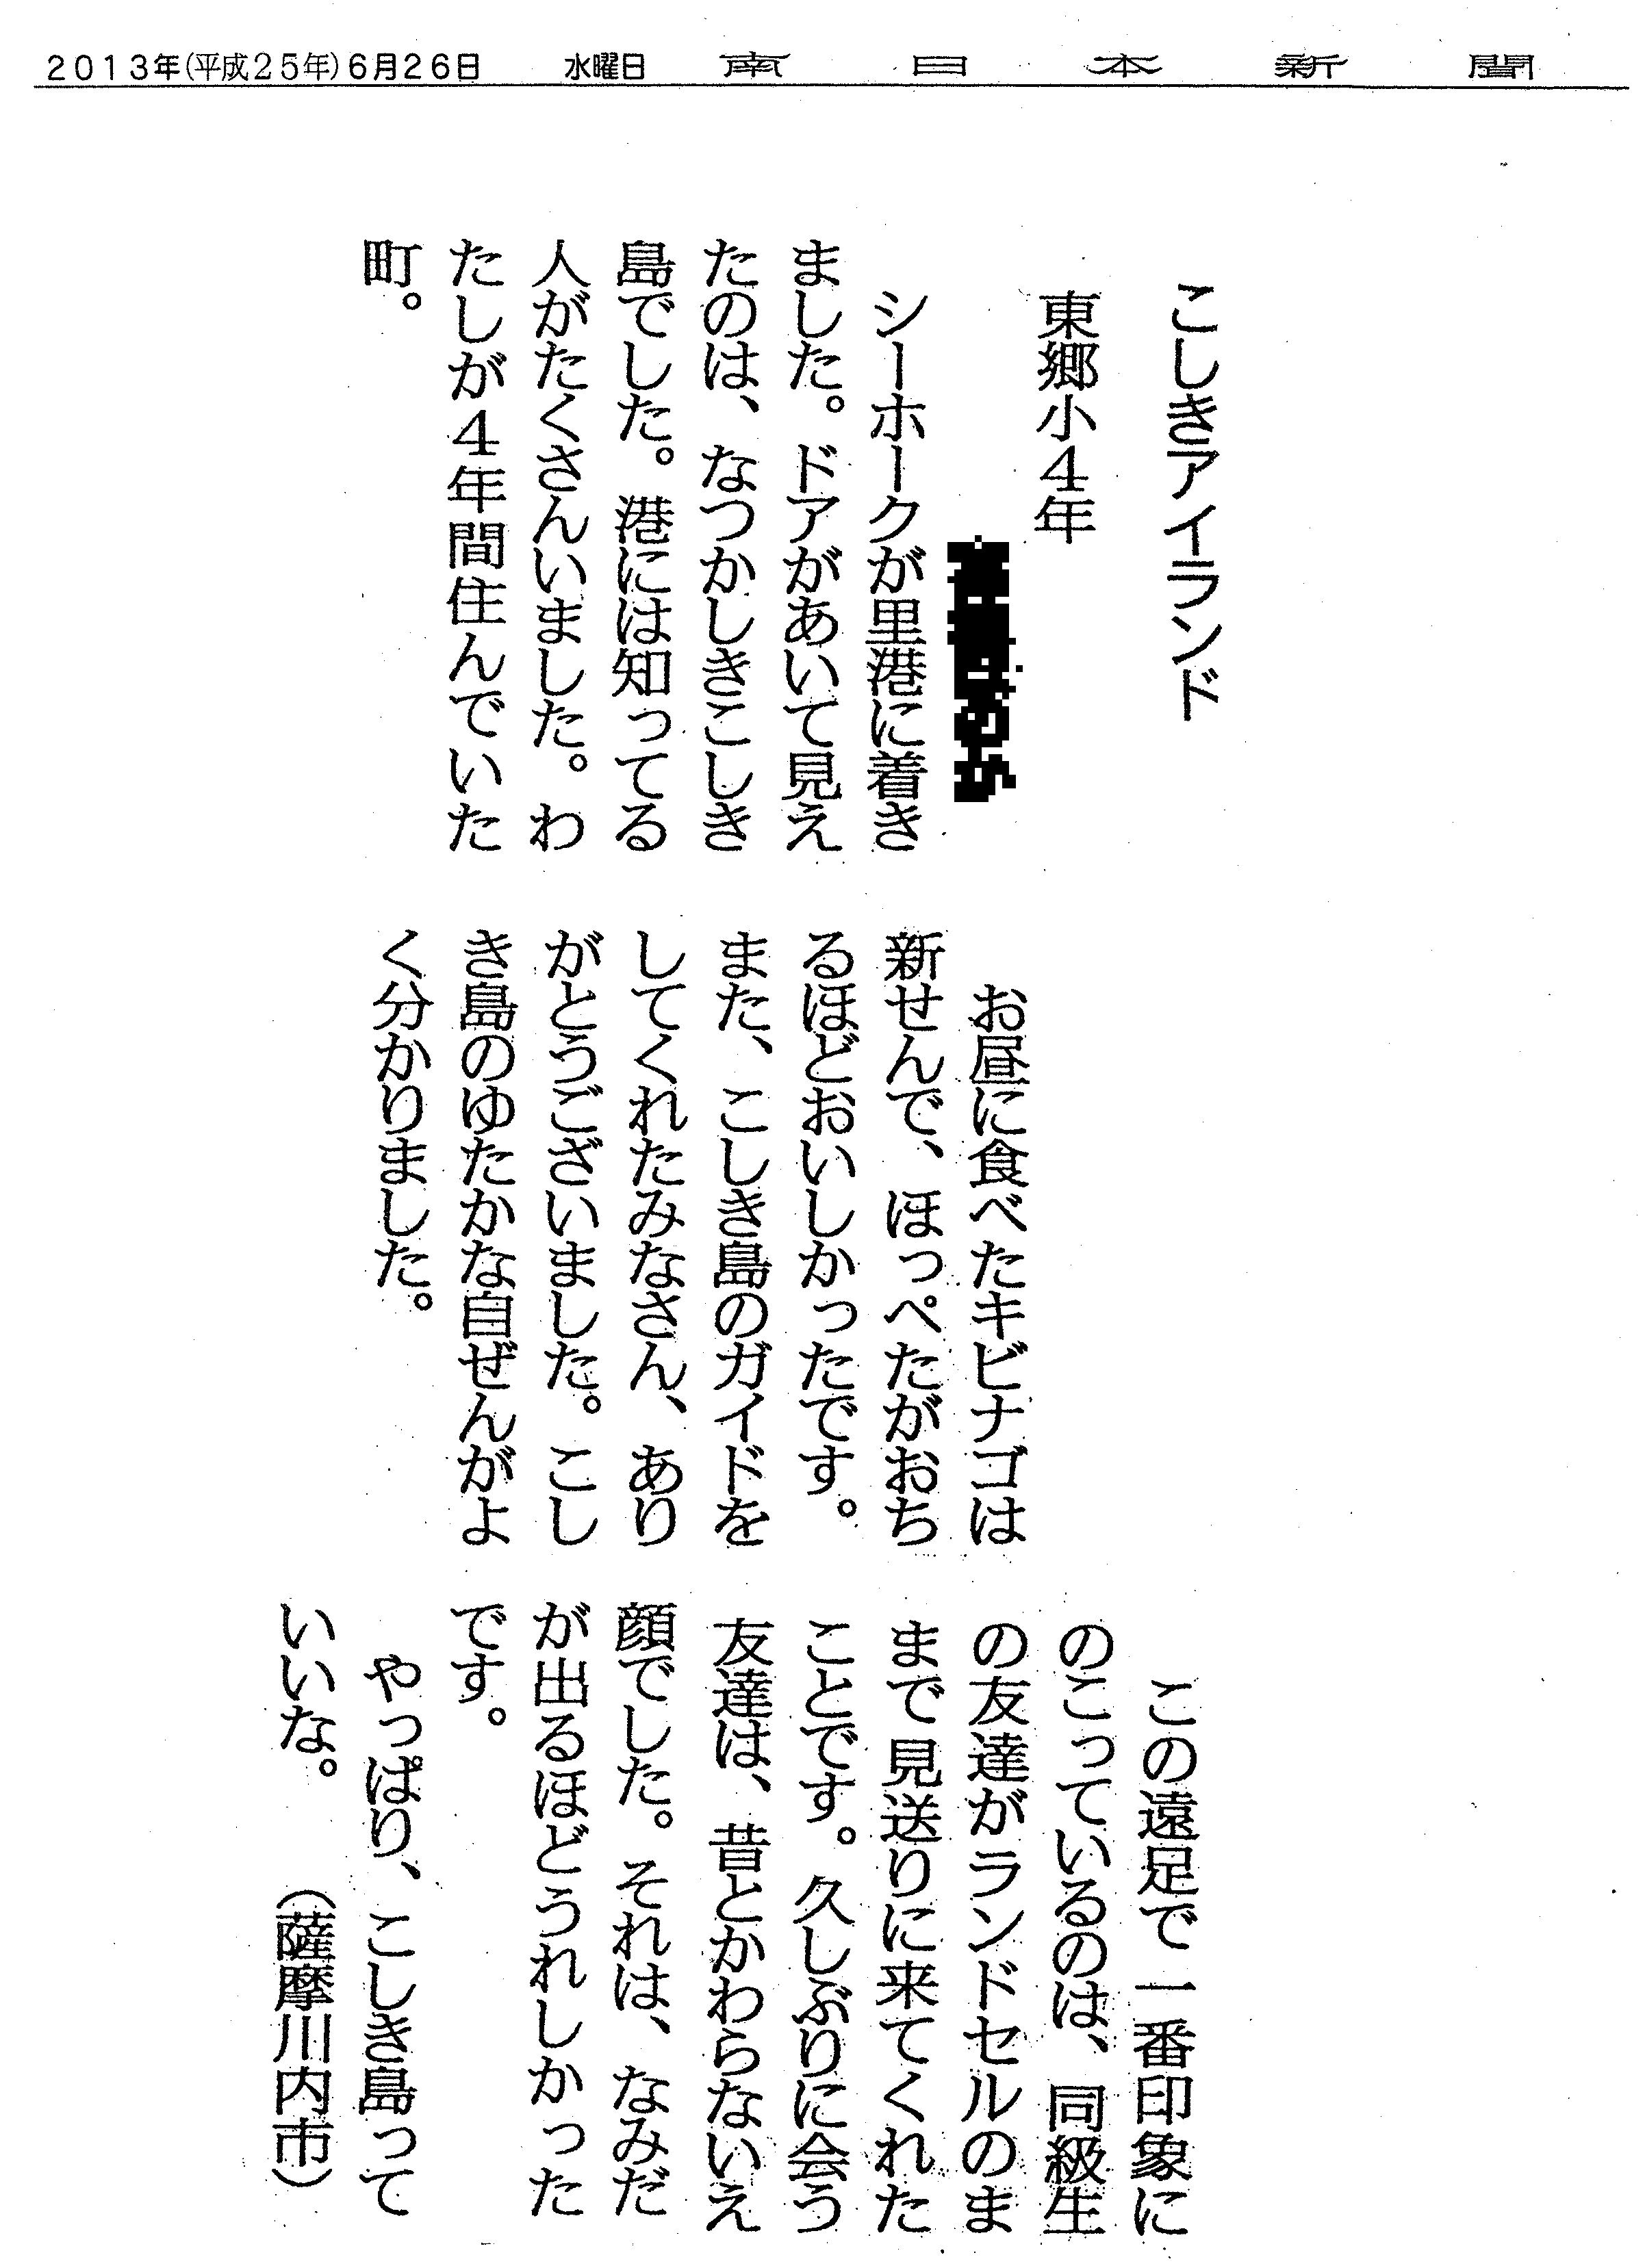 2013年(平成25年)6月26日　水曜日　南日本新聞
こしきアイランド
東郷小4年
　シーホークが里港に着き
ました。ドアがあいて見え
たのは、なつかしきこしき
島でした。港には知ってる
人がたくさんいました。わ
たしが4年間住んでいた
町。
　お昼に食べたキビナゴは
新せんで、ほっぺたがおち
るほどおいしかったです。
また、こしき島のガイドを
してくれたみなさん、あり
がとうございました。こし
き島のゆたかな自ぜんがよ
く分かりました。
　この遠足で一番印象に
のこっているのは、同級生
の友達がランドセルのま
まで見送りに来てくれた
ことです。久しぶりに会う
友達は、昔とかわらないえ
顔でした。それは、なみだ
が出るほどうれしかった
です。
　やっぱり、こしき島って
いいな。　（薩摩川内市）